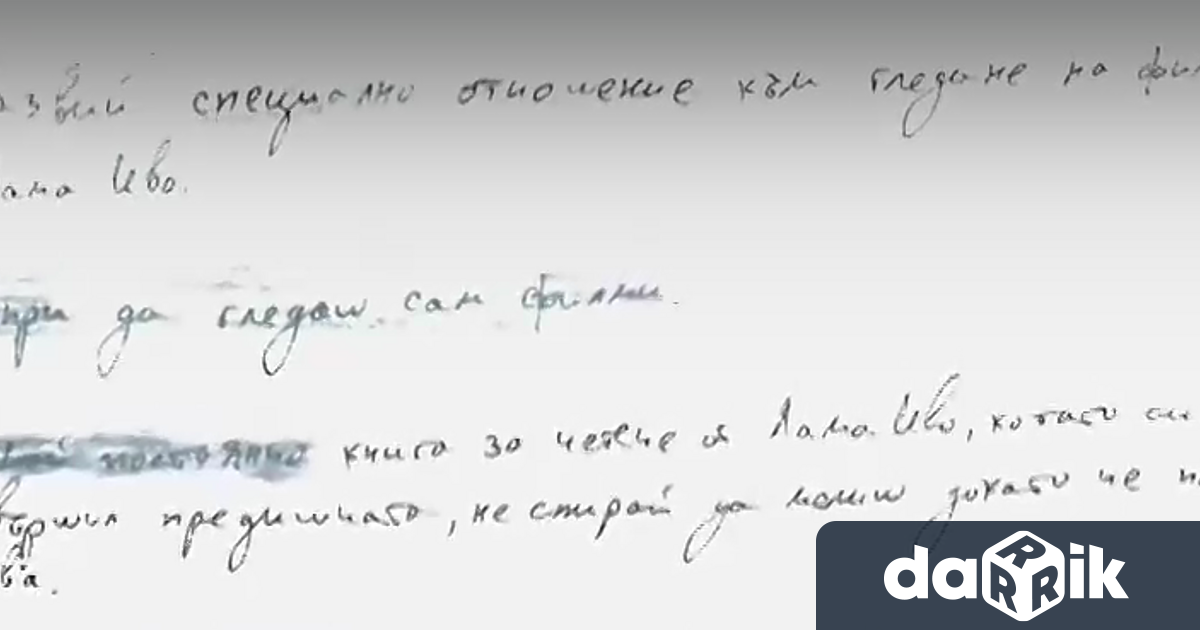 специално отношение към гледане на
Иво.
да гледаш сам филми.
постоянно книга за четене от Лама Иво, когато си
предишната, не спирай да молиш докато не
darik